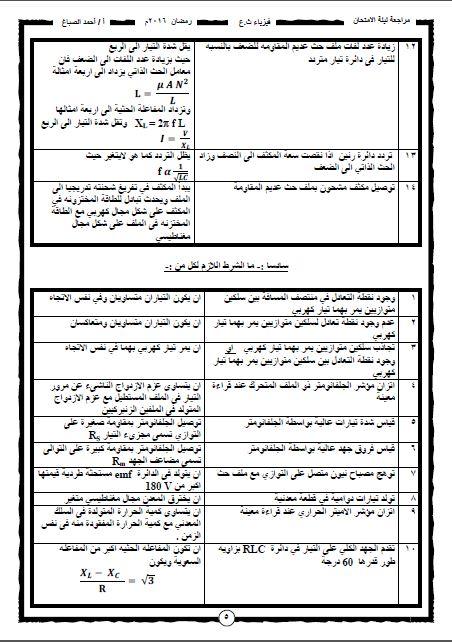 مراجعة ليلة الامتحان
فيزياء ث.ع
رمضان ٢٠١٦م
أ / أحمد الصباغ
١٢
زيادة عدد لفات ملف حث عديم المقاومه للضعف بالنسبه
للتيار فى دائرة تيار متردد
يقل شدة التيار الى الربع
حيث بزيادة عدد اللفات الى الضعف فان
معامل الحث الذاتي يزداد الى اربعة امثالة
L = μ A N² / L
وتزداد المفاعلة الحثية الى اربعة امثالها
XL = 2π f L وتقل شدة التيار الى الربع
I = V / XL
١٣
تردد دائرة رنين اذا نقصت سعة المكثف الى النصف وزاد
الحث الذاتى الى الضعف
يظل التردد كما هو لايتغير حيث
f α 1 / √LC
١٤
توصيل مكثف مشحون بملف حث عديم المقاومة
يبدأ المكثف فى تفريغ شحنته تدريجيا الى
الملف ويحدث تبادل للطاقة المختزونه فى
المكثف على شكل مجال كهربي مع الطاقة
المختزنه فى الملف على شكل مجال
مغناطيسي
سادسا :- ما الشرط اللازم لكل من :-
١
وجود نقطة التعادل فى منتصف المسافة بين سلكين
متوازيين يمر بهما تيار كهربي
ان يكون التياران متساويان وفى نفس الاتجاه
٢
عدم وجود نقطة تعادل لسلكين متوازيين يمر بهما تيار
كهربي
ان يكون التياران متساويان ومتعاكسان
٣
تجاذب سلكين متوازيين يمر بهما تيار كهربي او
وجود نقطة التعادل بين سلكين متوازيين يمر بهما تيار
كهربي
ان يمر تيار كهربي بهما فى نفس الاتجاه
٤
اتزان مؤشر الجلفانومتر ذو الملف المتحرك عند قراءة
معينة
ان يتساوى عزم الازدواج الناشىء عن مرور
التيار فى الملف المستطيل مع عزم الازدواج
المتولد فى الملفين الزنبركيين
٥
قياس شدة تيارات عالية بواسطة الجلفانومتر
توصيل الجلفانومتر بمقاومة صغيرة على
التوازي تسمى مجزىء التيار Rs
٦
قياس فروق جهد عالية بواسطة الجلفانومتر
توصيل الجلفانومتر بمقاومة كبيرة على التوالى
تسمى مضاعف الجهد Rm
٧
توهج مصباح نيون متصل على التوازي مع ملف حث
ان يتولد فى الدائرة emf مستحثة طردية قيمتها
اكبر من 180 V
٨
تولد تيارات دوامية فى قطعة معدنية
ان يخترق المعدن مجال مغناطيسي متغير
٩
اتزان مؤشر الاميتر الحراري عند قراءة معينة
ان يتساوى كمية الحرارة المتولدة فى السلك
المعدني مع كمية الحرارة المفقودة منه فى نفس
الزمن .
١٠
تقدم الجهد الكلي على التيار في دائرة RLC بزاويه
طور قدرها 60 درجة
ان تكون المفاعله الحثيه اكبر من المفاعله
السعوية ويكون
XL − XC / R = √3
٥